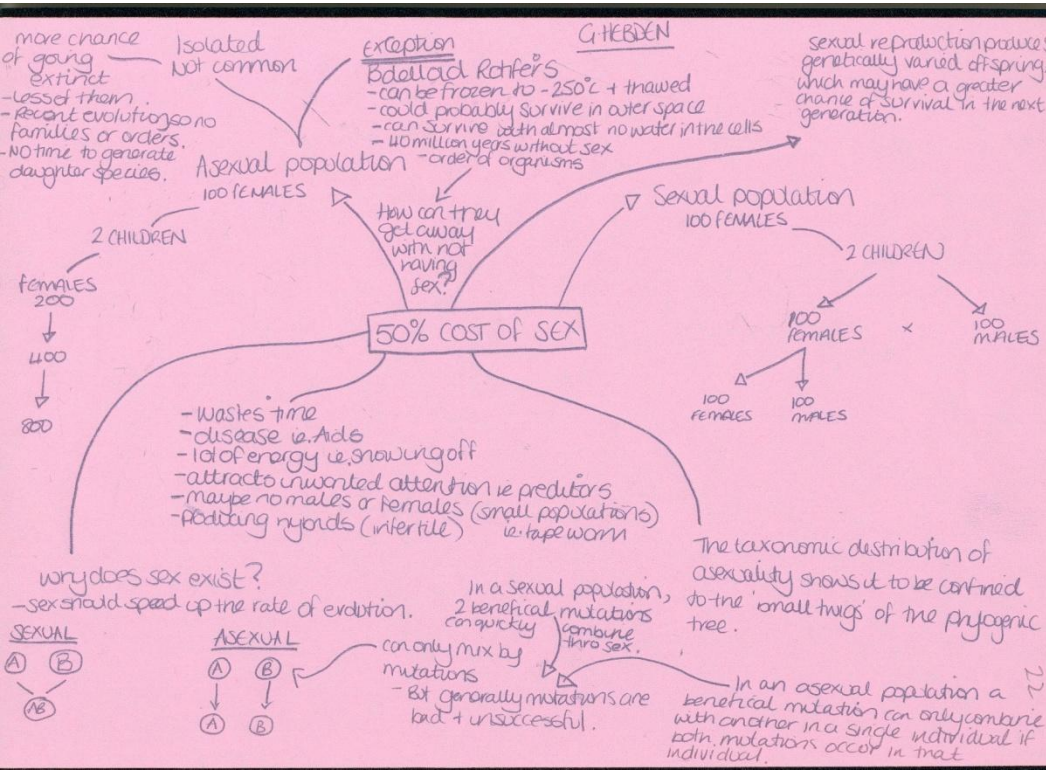 G.HEBDEN
more chance
of going
extinct
-Less of them.
-Recent evolution, so no
families or orders.
-NO time to generate
daughter species.
Isolated
Not common
exception
Bdelloid Rotifers
-can be frozen to -250°c + thawed
-could probably survive in outer space
-can survive with almost no water in the cells
-40 million years without sex
-order of organisms
How can they
get away
with not
having
sex?
sexual reproduction produces
genetically varied offspring,
which may have a greater
chance of survival in the next
generation.
Asexual population
100 FEMALES
2 CHILDREN
FEMALES
200
400
800
Sexual population
100 FEMALES
2 CHILDREN
100
FEMALES
x
100
MALES
100
FEMALES
100
MALES
50% COST OF SEX
-wastes time
-disease ie. Aids
-lot of energy ie, showing off
-attracts unwanted attention ie preditors
-maybe no males or females (small populations)
ie. tape worm
-producing hybrids (infertile)
why does sex exist?
-sex should speed up the rate of evolution.
SEXUAL
A B
AB
ASEXUAL
A B
A B
can only mix by
mutations
- But generally mutations are
bad + unsuccessful.
In a sexual population,
2 benefical mutations
can quickly combine
thro sex.
The taxonomic distribution of
asexuality shows it to be confined
to the 'small twigs' of the phylogenic
tree.
In an asexual population a
benefical mutation can only combine
with another in a single individual if
both mutations occur in that
individual.
22